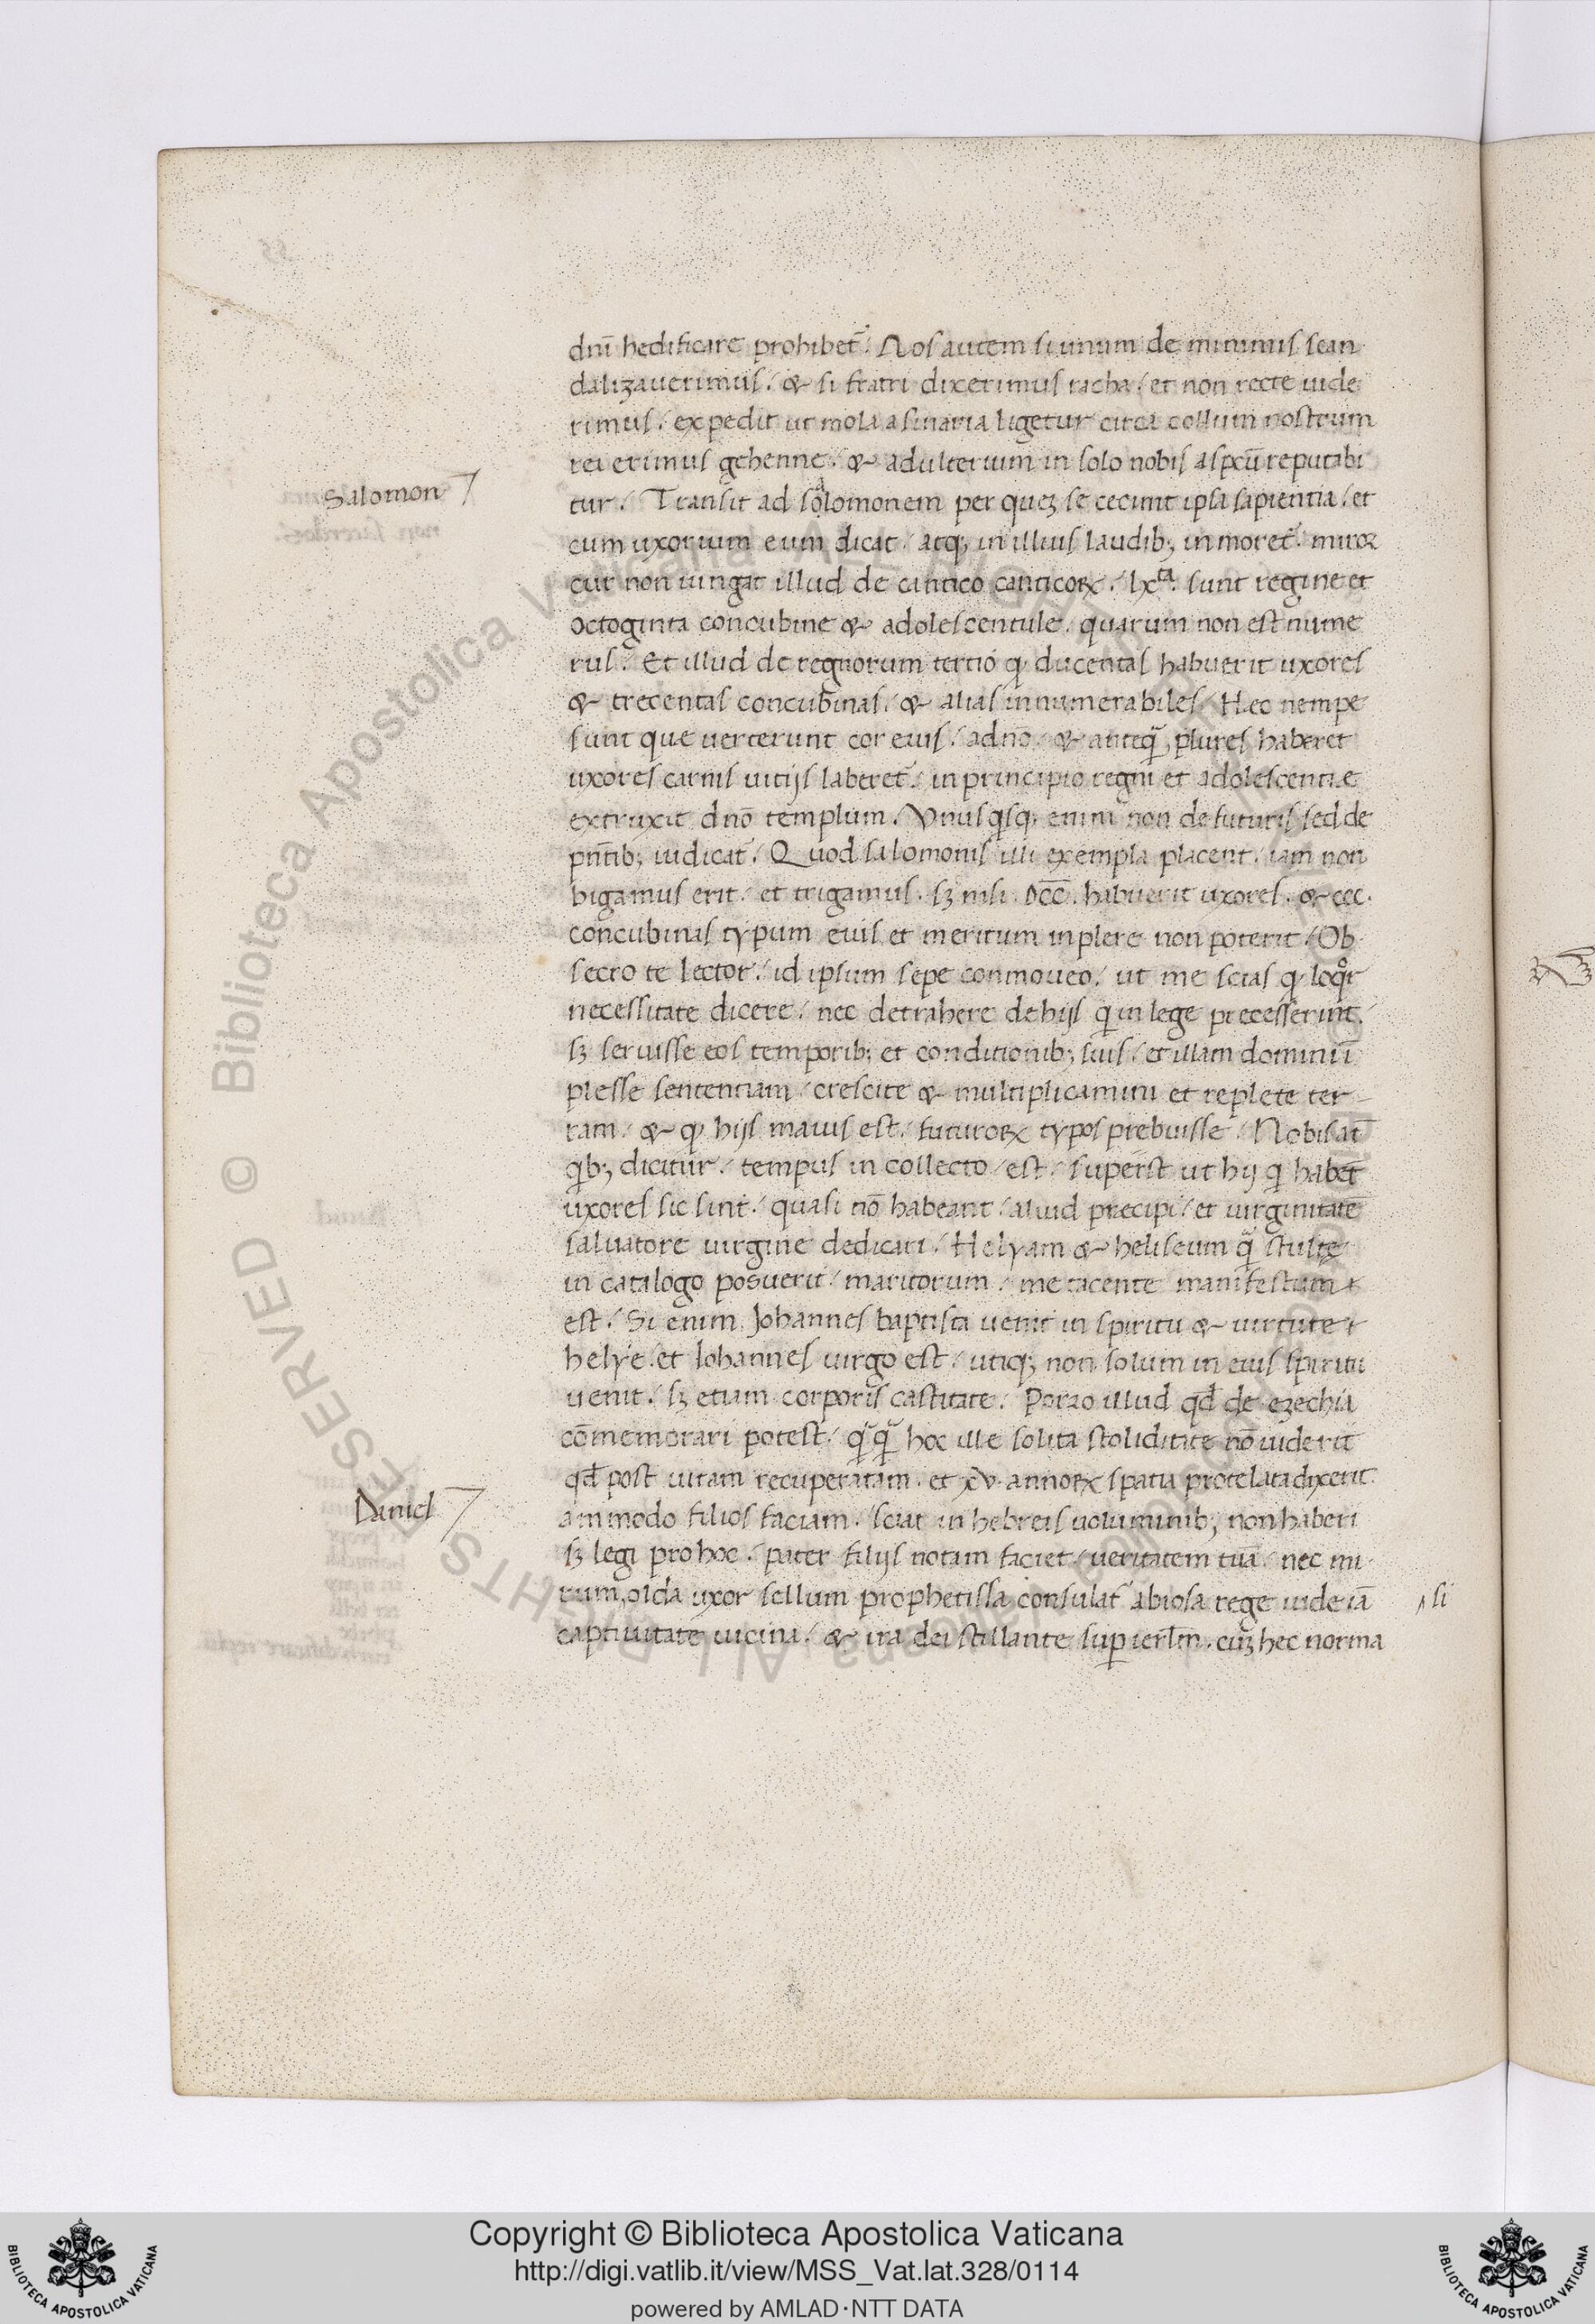 dnī hedificare prohibet̄. Nos autem si unum de minimis scan
dalizauerimus. & si fratri dixerimus racha. et non recte uide
rimus. expedit ut mola asinaria ligetur circa collum nostrum
rei erimus gehenne. & adulterium in solo nobis aspcū reputabi
tur. Transit ad salomonem per quez se cecinit ipsa sapientia. et
Salomon
cum uxorium eum dicat. atq; in illius laudib; inmoret̄. miror
cur non iungat illud de cantico canticoꝝ. lxᵗᵃ. sunt regine et
octoginta concubine & adolescentule. quarum non est nume
rus. Et illud de regnorum tertio ꝙ ducentas habuerit uxores
& trecentas concubinas. & alias innumerabiles. Hec nempe
sunt que uerterunt cor eius. a dnō. & anteq̄ plures haberet
uxores carnis uitijs laberet̄. in principio regni et adolescentie
extruxit dnō templum. Vnusqisq; enim non de futuris sed de
pn̄tib; iudicat̄. Quod salomonis illi exempla placent. iam non
bigamus erit. et trigamus. sꝫ nisi .DCC. habuerit uxores. & ccc.
concubinas typum eius et meritum inplere non poterit. Ob
secro te lector. id ipsum sepe conmoueo. ut me scias ꝙ loqͦr
necessitate dicere. nec detrahere de hijs q̇ in lege precesserunt.
sꝫ seruisse eos temporib; et conditionib; suis. et illam domini ī
plesse sententiam. crescite & multiplicamini et replete ter
ram. & ꝙ hijs maius est. futuroꝝ typos prebuisse. Nobis at̄
qib; dicitur. tempus in collecto est. superst ut hij q̇ habēt
uxores sic sint. quasi nō habeant. aliud precipi. et uirginitatē
saluatore uirgine dedicari. Helyam & heliseum q̄ stulte
in catalogo posuerit. maritorum. me tacente manifestum
est. Si enim Johannes baptista uenit in spiritu & uirtute
helye. et Iohannes uirgo est. utiq; non solum in eius spiritu
uenit. sꝫ etiam corporis castitate. Porro illud qd̄ de ezechia
cōmemorari potest. q̄q̄ hoc ille solita stoliditate nō uiderit
qd̄ post uitam recuperatam. et xv. annoꝝ spatia protelata dixerit
Daniel
ammodo filios faciam. sciat in hebreis uoluminib; non haberi
sꝫ legi pro hoc. pater filijs notam faciet. ueritatem tuā. nec mi
rum, olda uxor sellum prophetissa consulat̄ a biosa rege uide iā
si
captiuitate uicina. & ira dei stillante sup ierl̄m. cuiꝫ hec norma
Copyright © Biblioteca Apostolica Vaticana
http://digi.vatlib.it/view/MSS_Vat.lat.328/0114
powered by AMLAD·NTT DATA